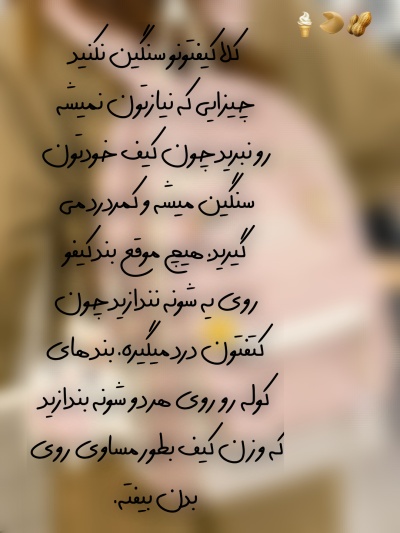 کلا کیفتونو سنگین نکنید
چیزایی که نیازتون نمیشه
رو نبرید چون کیف خودتون
سنگین میشه و کمردرد می
گیرید. هیچ موقع بند کیفو
روی یه شونه نندازید چون
کتفتون درد میگیره. بند های
کوله رو روی هر دو شونه بندازید
که وزن کیف بطور مساوی روی
بدن بیفته.